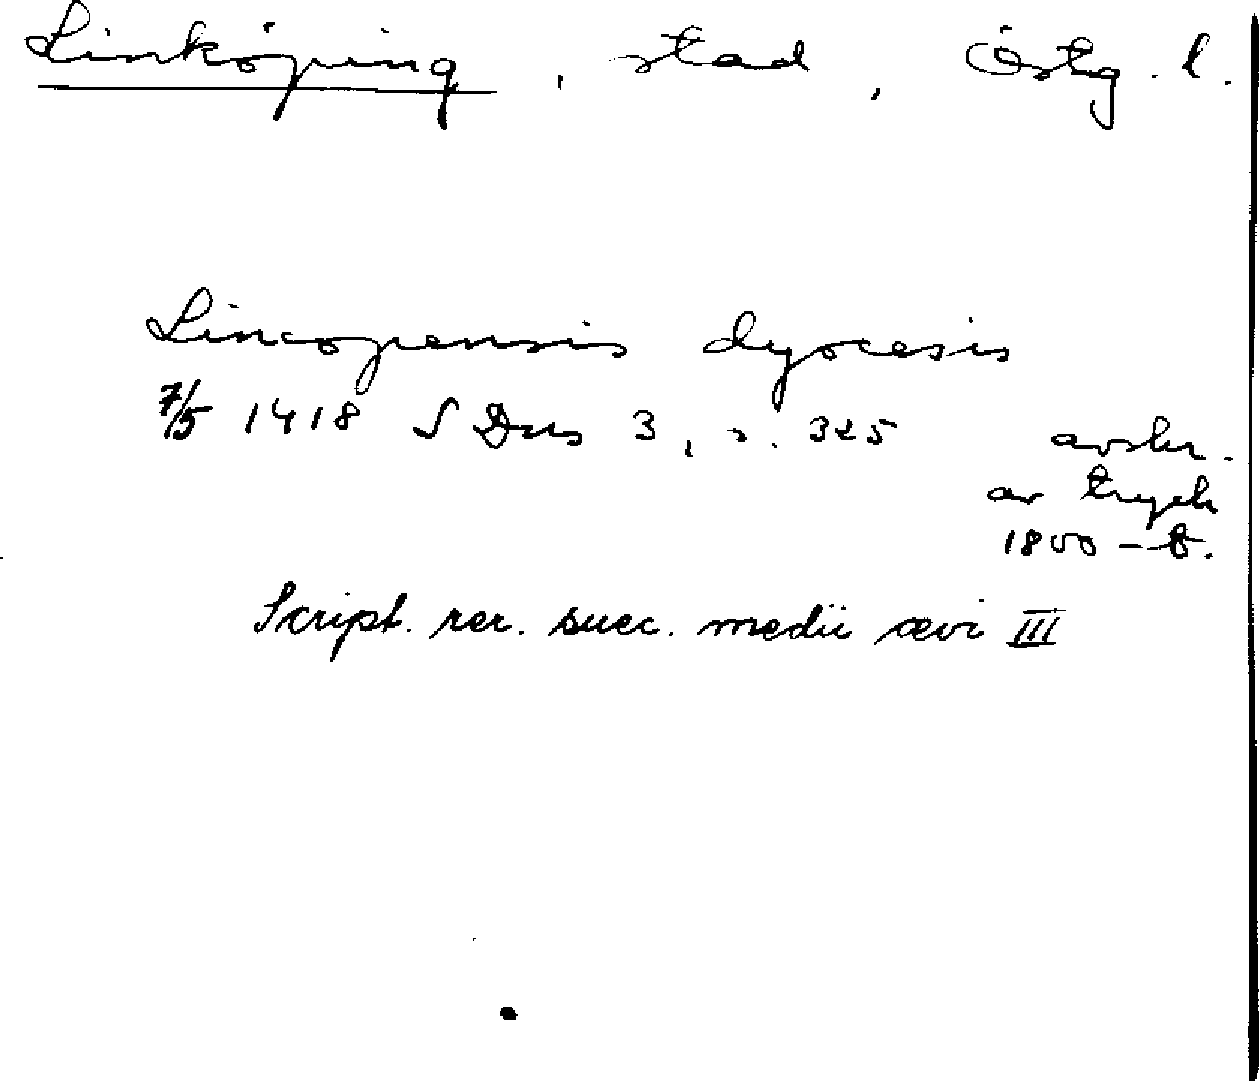 Linköping, stad, Östg. l.
Lincopensis dyocesis
7/5 1418 S Dns 3, s. 325
avskr.
av tryck
1800-t.
Script. rer. suec. medii ævi III